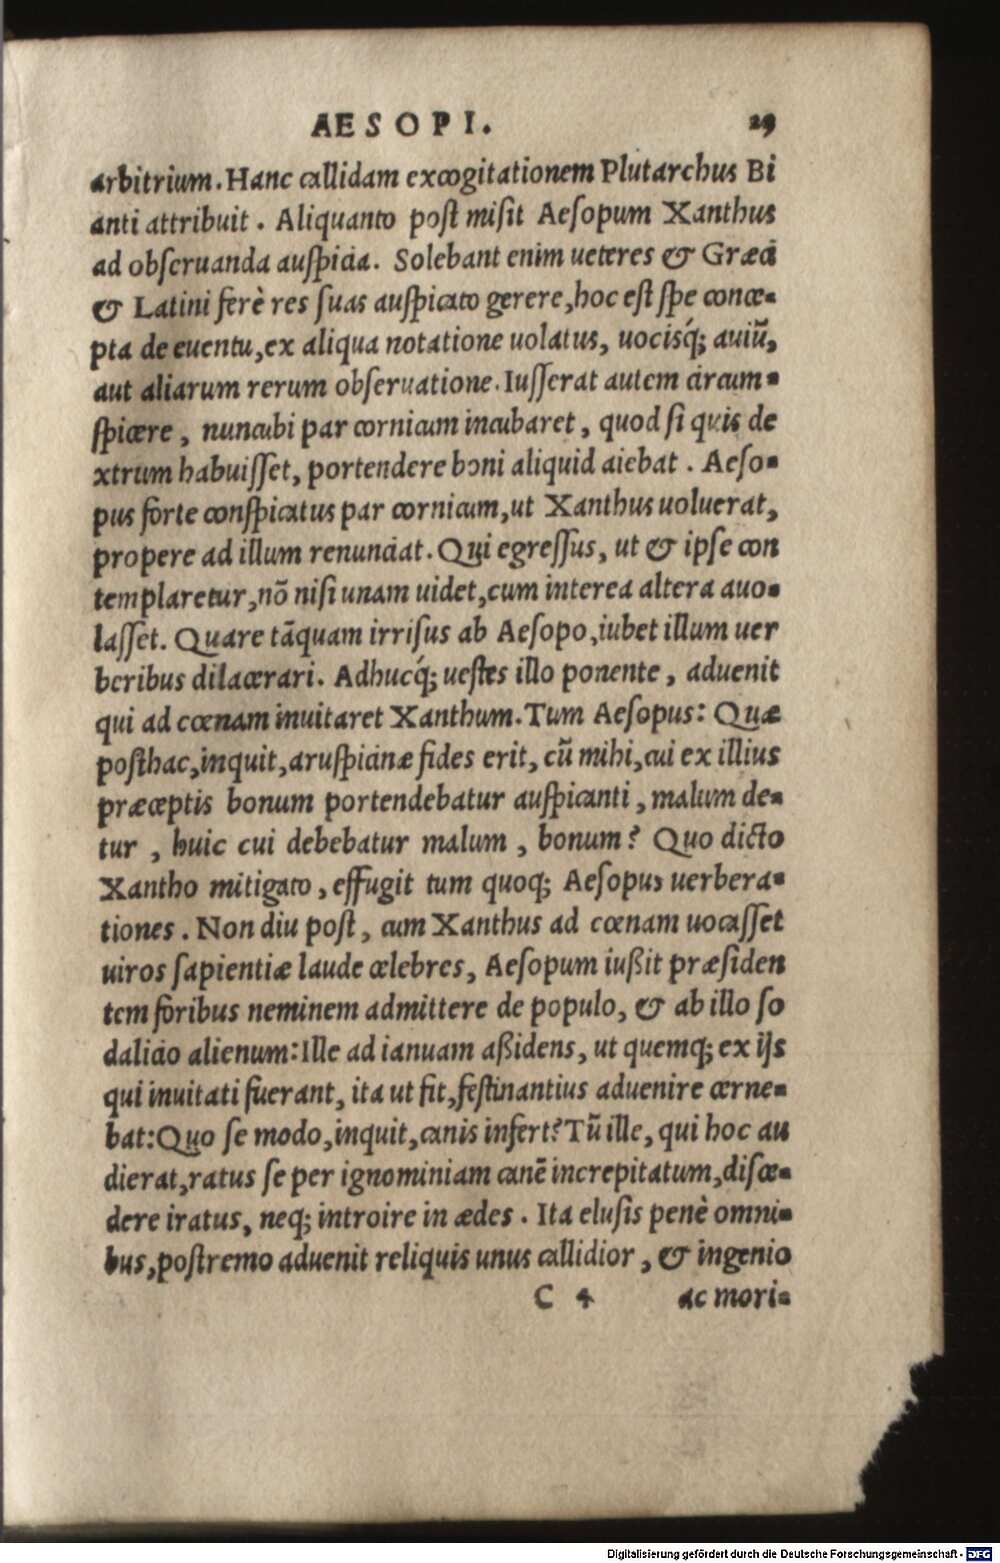 AESOPI. 29
arbitrium. Hanc callidam excogitationem Plutarchus Bi
anti attribuit. Aliquanto post misit Aesopum Xanthus
ad obseruanda auspicia. Solebant enim ueteres & Græci
& Latini ferè res suas auspicato gerere, hoc est spe conce-
pta de euentu, ex aliqua notatione uolatus, uocisq́; auiũ,
aut aliarum rerum obseruatione. Iusserat autem circum-
spicere, nuncubi par cornicum incubaret, quod si quis de
xtrum habuisset, portendere boni aliquid aiebat. Aeso-
pus forte conspicatus par cornicum, ut Xanthus uoluerat,
propere ad illum renunciat. Qui egressus, ut & ipse con
templaretur, nõ nisi unam uidet, cum interea altera auo-
lasset. Quare tãquam irrisus ab Aesopo, iubet illum uer
beribus dilacerari. Adhucq́; uestes illo ponente, aduenit
qui ad cœnam inuitaret Xanthum. Tum Aesopus: Quæ
posthac, inquit, aruspicinæ fides erit, cũ mihi, cui ex illius
præceptis bonum portendebatur auspicanti, malum de-
tur, huic cui debebatur malum, bonum? Quo dicto
Xantho mitigato, effugit tum quoq; Aesopus uerbera-
tiones. Non diu post, cum Xanthus ad cœnam uocasset
uiros sapientiæ laude celebres, Aesopum iußit præsiden
tem foribus neminem admittere de populo, & ab illo so
dalicio alienum: Ille ad ianuam aßidens, ut quemq; ex ijs
qui inuitati fuerant, ita ut fit, festinantius aduenire cerne-
bat: Quo se modo, inquit, canis infert? Tũ ille, qui hoc au
dierat, ratus se per ignominiam canẽ increpitatum, disce-
dere iratus, neq; introire in ædes. Ita elusis penè omni-
bus, postremo aduenit reliquis unus callidior, & ingenio
C 4 ac mori-
Digitalisierung gefördert durch die Deutsche Forschungsgemeinschaft - DFG